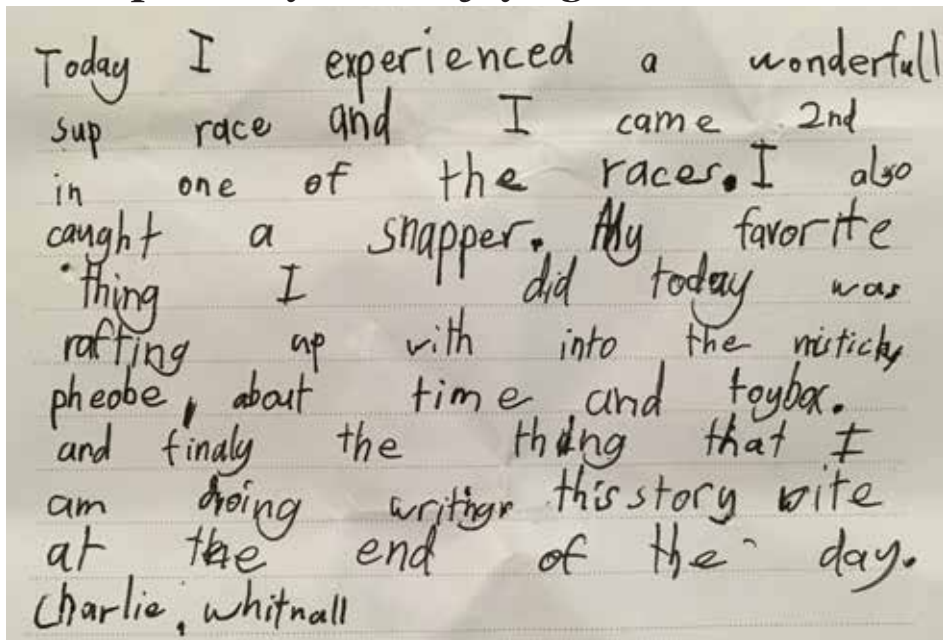 Today I experienced a wonderfull
sup race and I came 2nd
in one of the races. I also
caught a snapper. My favorite
thing I did today was
rafting up with into the misticky
pheobe, about time and toybox.
and finaly the thing that I
am doing writing this story rite
at the end of the day.
Charlie, whitnall